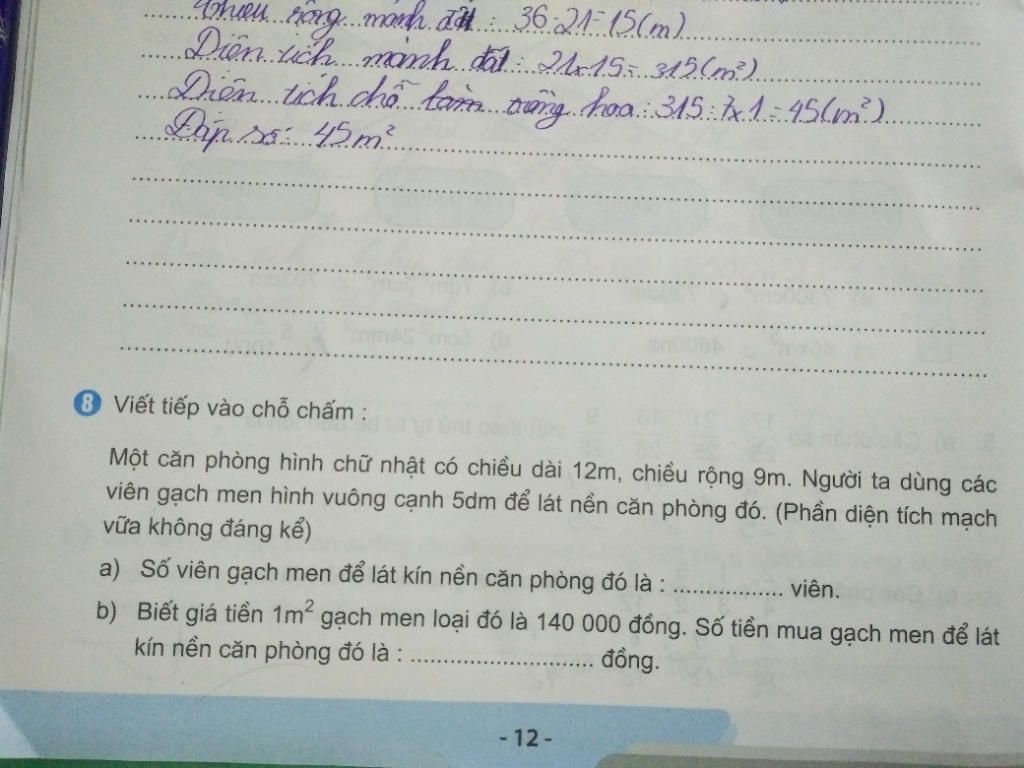 Chiều rộng mảnh đất : 36 - 21 = 15 (m)
Diện tích mảnh đất : 21 x 15 = 315 (m²)
Diện tích chỗ làm trồng hoa : 315 : 7 x 1 = 45 (m²)
Đáp số : 45 m²
8 Viết tiếp vào chỗ chấm :
Một căn phòng hình chữ nhật có chiều dài 12m, chiều rộng 9m. Người ta dùng các
viên gạch men hình vuông cạnh 5dm để lát nền căn phòng đó. (Phần diện tích mạch
vữa không đáng kể)
a) Số viên gạch men để lát kín nền căn phòng đó là : .................. viên.
b) Biết giá tiền 1m² gạch men loại đó là 140 000 đồng. Số tiền mua gạch men để lát
kín nền căn phòng đó là : ............................. đồng.
- 12 -